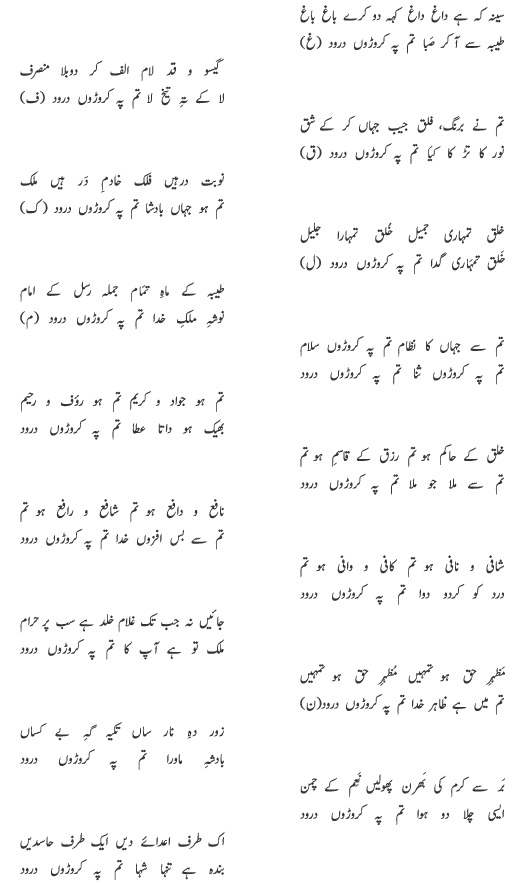 سینہ کہ ہے داغ داغ کہہ دو کرے باغ باغ
طیبہ سے آ کر صَبا تم پہ کروڑوں درود (غ)
گیسو و قد لام الف کر دوبلا منصرف
لا کے تہِ تیغِ لا تم پہ کروڑوں درود (ف)
تم نے برنگ، فلق جیب جہاں کر کے شق
نور کا تڑ کا کیَا تم پہ کروڑوں درود (ق)
نوبت درہیں فلک خادمِ دَر ہیں ملک
تم ہو جہاں بادشا تم پہ کروڑوں درود (ک)
خلق تمہاری جمیل خُلق تمہارا جلیل
خَلق تمہَاری گدا تم پہ کروڑوں درود (ل)
طیبہ کے ماہِ تمَام جملہ رسل کے امام
نوشہِ ملکِ خدا تم پہ کروڑوں درود (م)
تم سے جہاں کا نظام تم پہ کروڑوں سلام
تم پہ کروڑوں ثنا تم پہ کروڑوں درود
تم ہو جواد و کریم تم ہو رؤف و رحیم
بھیک ہو داتا عطا تم پہ کروڑوں درود
خلق کے حاکم ہو تم رزق کے قاسمِ ہو تم
تم سے ملا جو ملا تم پہ کروڑوں درود
نافع و دافع ہو تم شافع و رافع ہو تم
تم سے بس افزوں خدا تم پہ کروڑوں درود
شافی و نافی ہو تم کافی و وافی ہو تم
درد کو کردو دوا تم پہ کروڑوں درود
جائیں نہ جب تک غلام خلد ہے سب پر حرام
ملک تو ہے آپ کا تم پہ کروڑوں درود
مَظہرِ حق ہو تمہیں مُظہرِ حق ہو تمہیں
تم میں ہے ظاہر خدا تم پہ کروڑوں درود(ن)
زور دہِ نار ساں تکیہ گہِ بے کساں
بادشہِ ماورا تم پہ کروڑوں درود
بَر سے کرم کی بَھرن پھولیں نَعِم کے چمن
ایسی چلا دو ہوا تم پہ کروڑوں درود
اک طرف اعدائے دیں ایک طرف حاسدیں
بندہ ہے تنہا شہا تم پہ کروڑوں درود